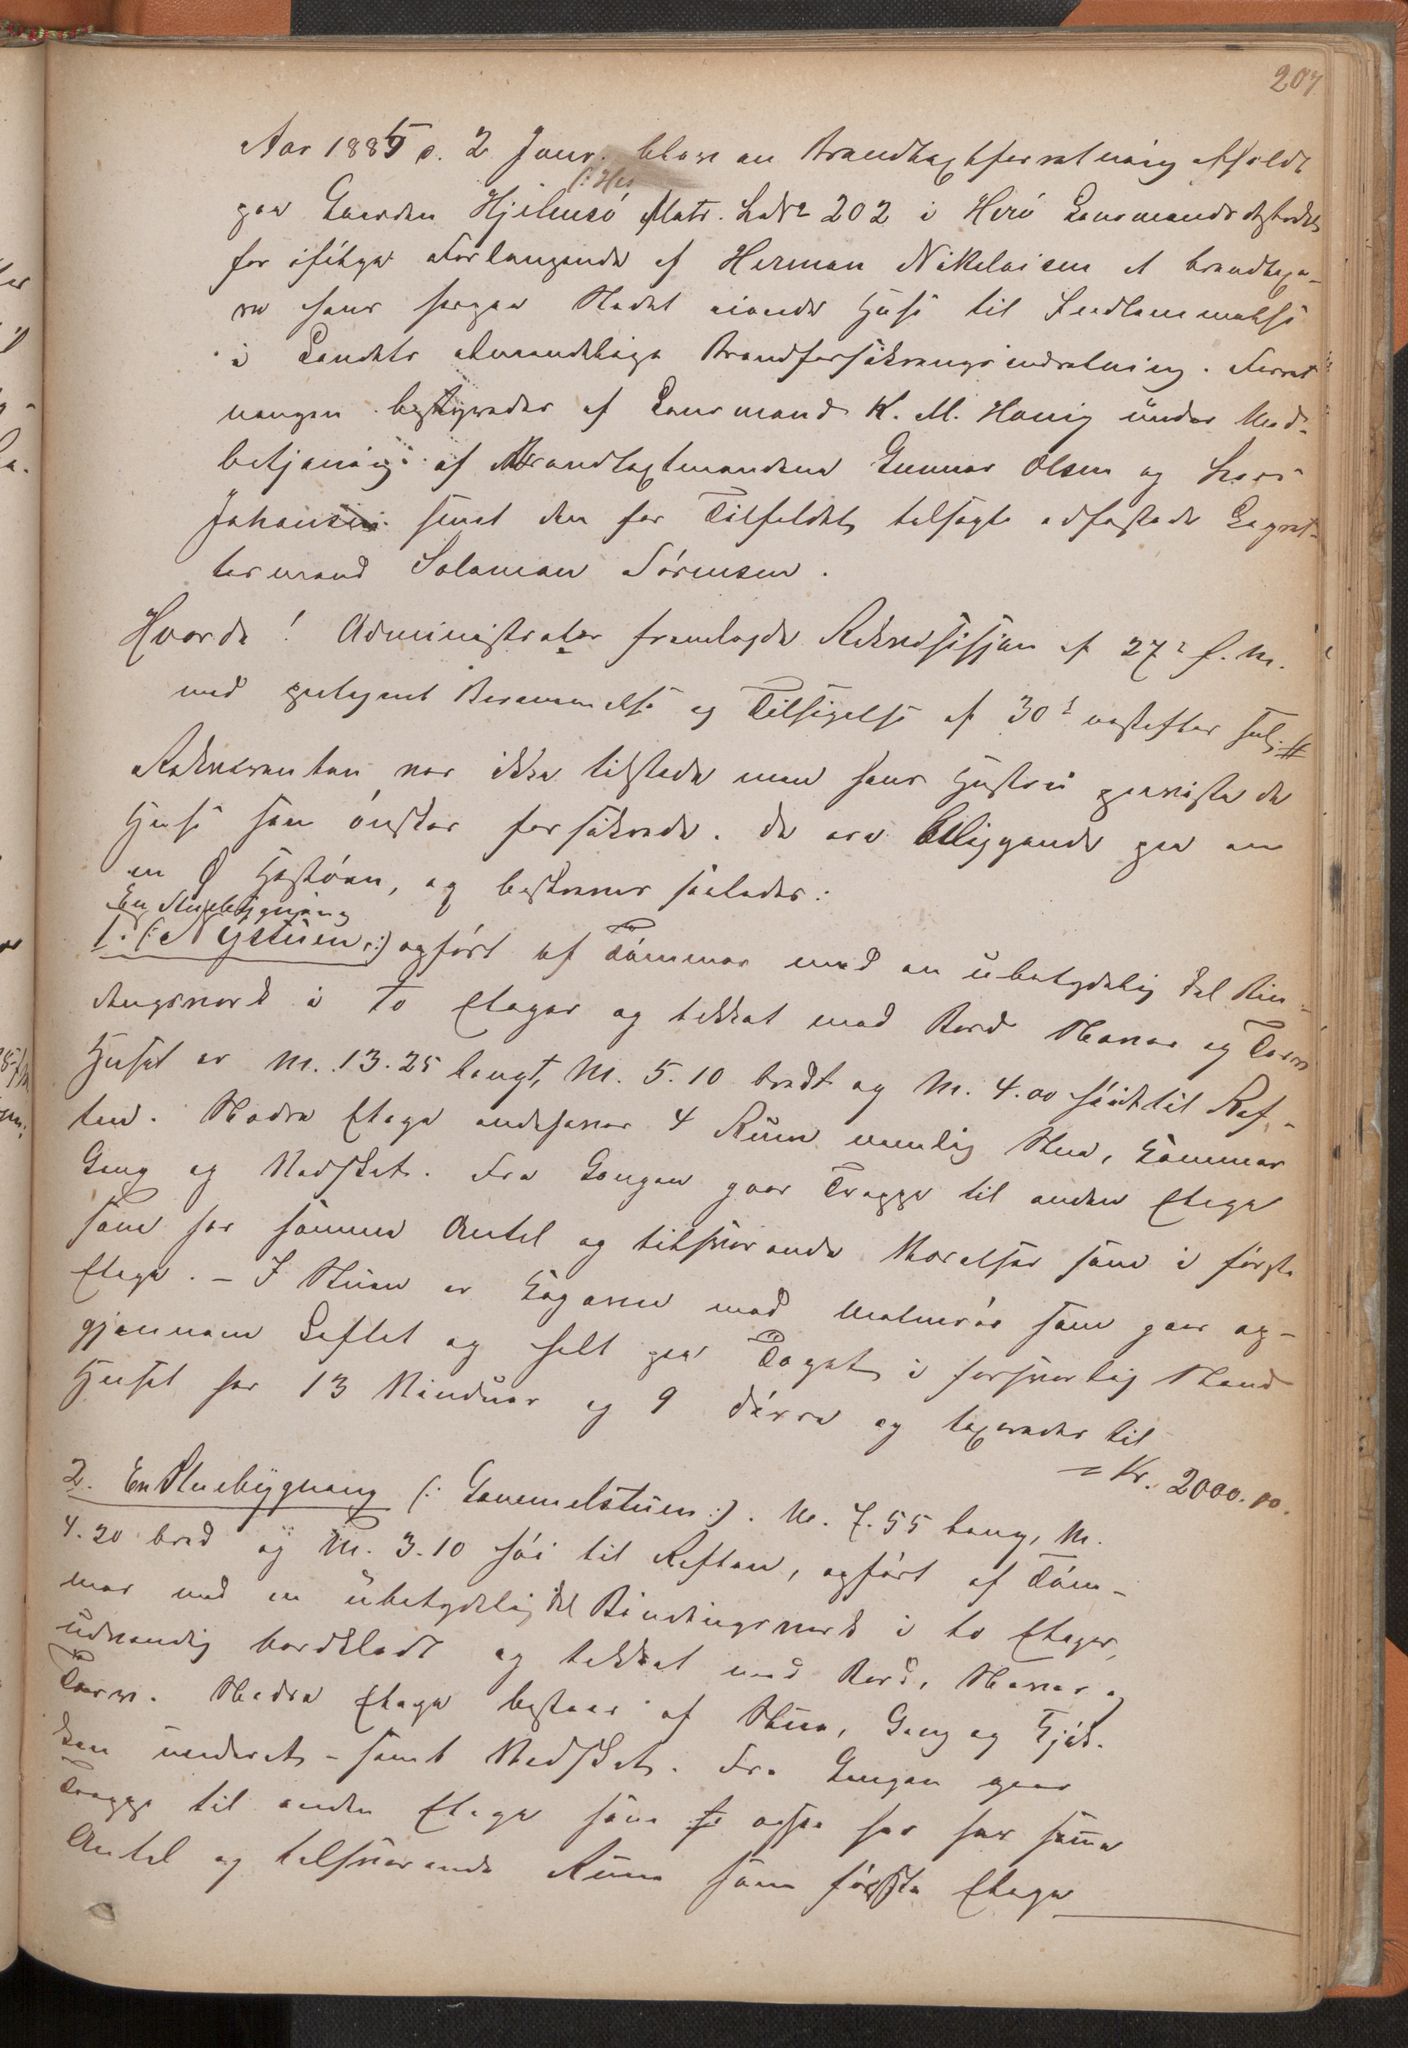 207
Aar 1885 d. 2 Janr. blev en Brandtaxtforretning afholdt
paa Gaarden Hjelmsö Matr. LNo 202 i Herö Lensmandsdistrikt
for ifölge Forlangende af Herman Nikolaisen at brandtaxe-
re hans herpaa Stedet eiende Huse til Indlemmelse
i Landets almindelige Brandforsikringsindretning. Forret
ningen bestyredes af Lensmand K. M. Honig under Med-
betjening af Brandtaxtmændene Gunnar Olsen og Lars
Johansen samt den for Tilfældet tilsagte edfæstede Lagret-
tesmand Salamon Sørensen.
Hvorda! Administrator fremlagde Rekvisisjon af 27e f. M.
med paategnet Berammelse og Tilsigelse af 30te næstefter
Rekvirenten var ikke tilstede men hans Hustru paaviste de
Huse som ønskes forsikrede. De ere beliggende paa en
en Ø, og beskrives saaledes:
En Stuebygning
1. (: Nÿstuen :) opfört af Tömmer med en ubetydelig Del Bin-
dingsverk i to Etager og tækket med Bord Næver og Torv
Huset er M. 13.25 langt, M. 5.10 bredt og M. 4.00 höit til Raf-
ten. Nedre Etage indehaver 4 Rum nemlig Stue, Kammer
Gang og Vedskot. Fra Gangen gaar Trappe til anden Etage
som har samme Antal og tilsvarende Værelser som i förste
Etage. - I Stuen er Kogeovn med Malmrör som gaar op-
gjennem Loftet og helt paa Taget i forsvarlig Stand
Huset har 13 Vinduer og 9 Dörre og taxeredes til
= Kr. 2000.00.
2. En Stuebygning (: Gammelstuen :). M. 7.55 lang, M.
4.20 bred og M. 3.10 höi til Raften, opfört af Töm-
mer med en ubetydelig Del Bindingsverk i to Etager,
udvendig bordklædt og tækket med Bord, Næver og
Torv. Nedre Etage bestaar af Stue, Gang og Kjök-
ken indrettet - samt Vedskot. Fra Gangen gaar
Trappe til anden Etage som ogsaa har har samme
Antal og tilsvarende Rum som förste Etage